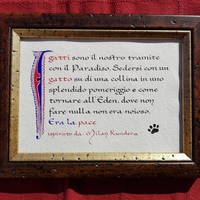 I
gatti sono il nostro tramite
con il Paradiso. Sedersi con un
gatto su di una collina in uno
splendido pomeriggio è come
tornare all'Eden, dove non
fare nulla non era noioso.
Era la pace
ispirato da: Milan Kundera